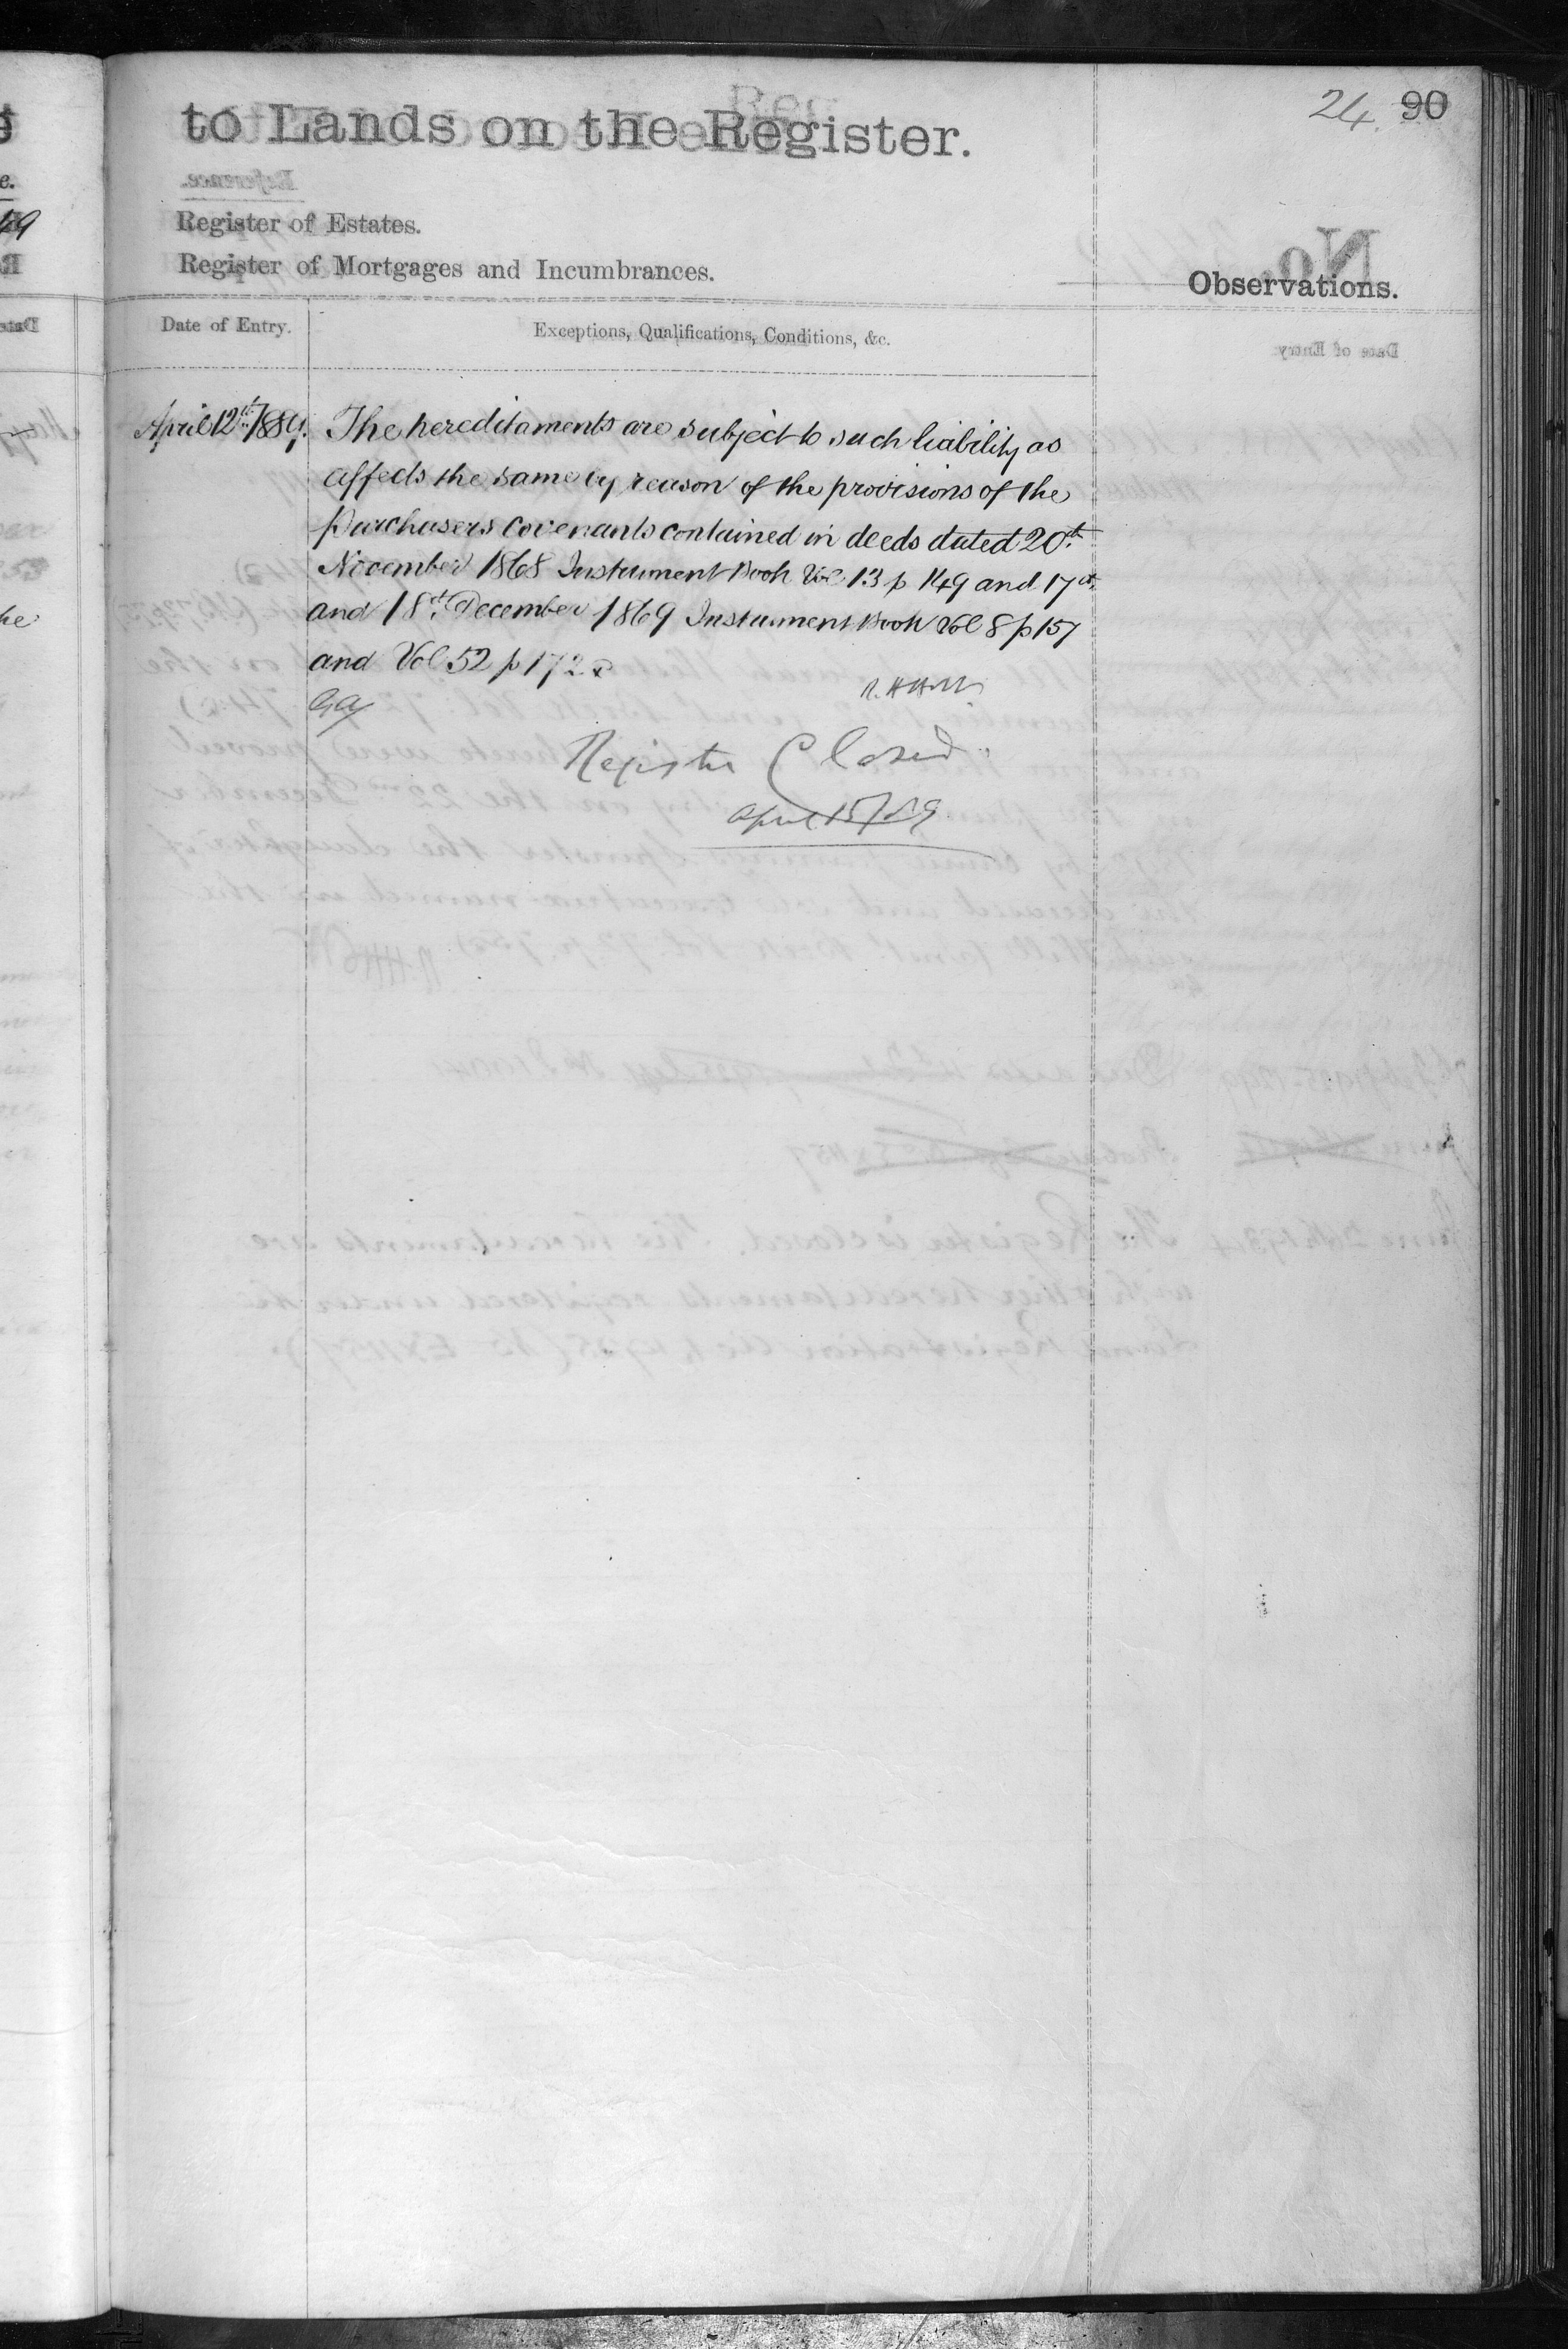 24. 90
to Lands on the Register.
Register of Estates.
Register of Mortgages and Incumbrances.
Observations.
Date of Entry.
Exceptions, Qualifications, Conditions, &c.
April 12th 1889. The hereditaments are subject to such liability as
affects the same by reason of the provisions of the
purchasers covenants contained in deeds dated 20th
November 1868 Instrument Book Vol 13 p 149 and 17th
and 18th December 1869 Instrument Book Vol 8 p 157
and Vol 52 p 172
Register Closed
April 15/89